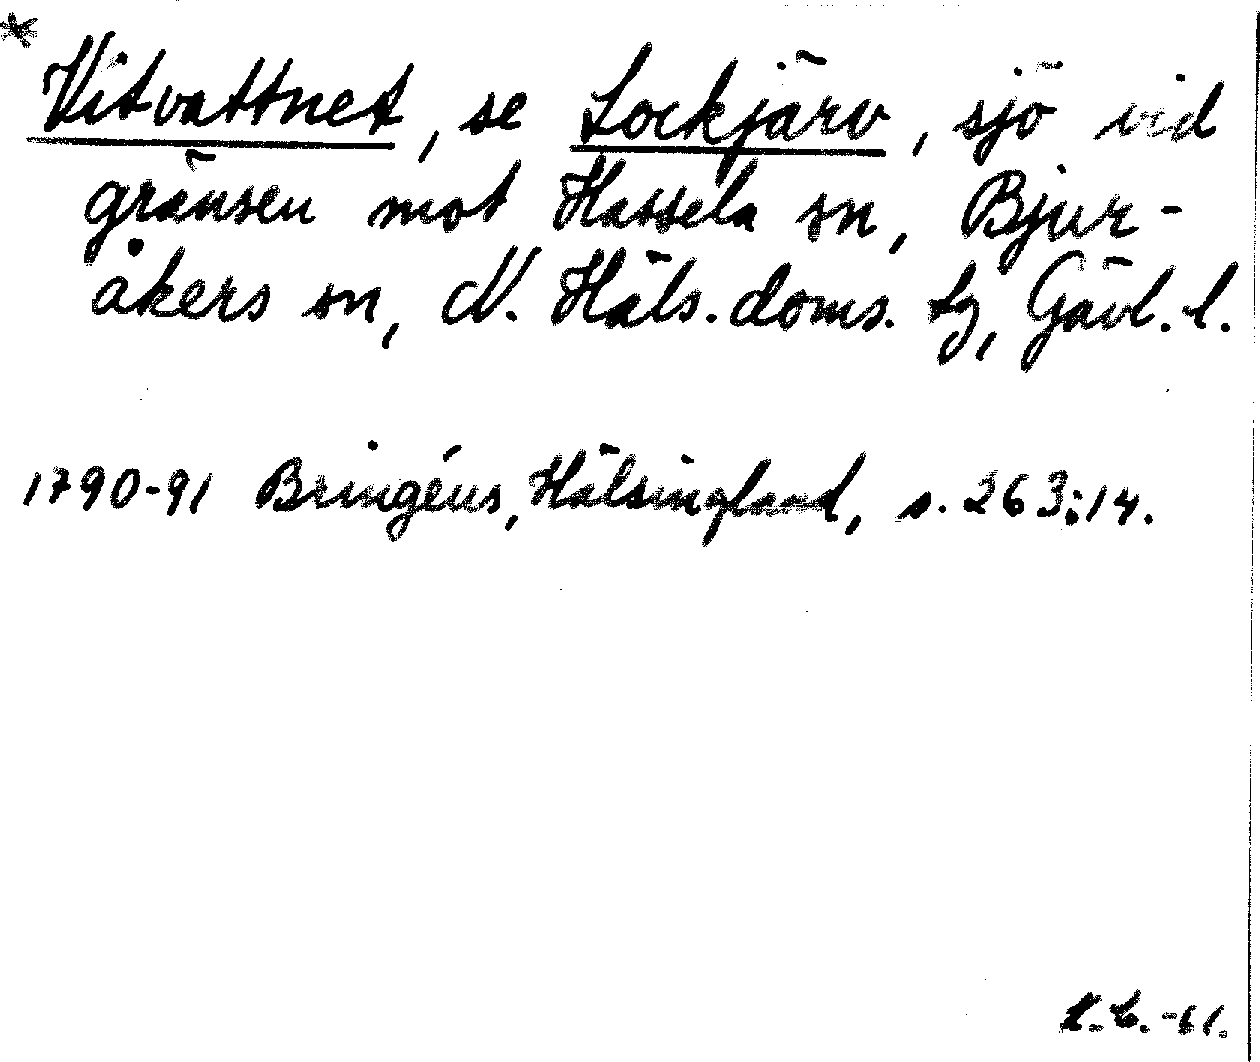 * Vitvattnet, se Lockjärv, sjö vid
gränsen mot Hassela sn, Bjur-
åkers sn, N. Häls. doms. tg, Gävl. l.
1790-91 Bringéus, Hälsingland, s. 263:14.
-61.